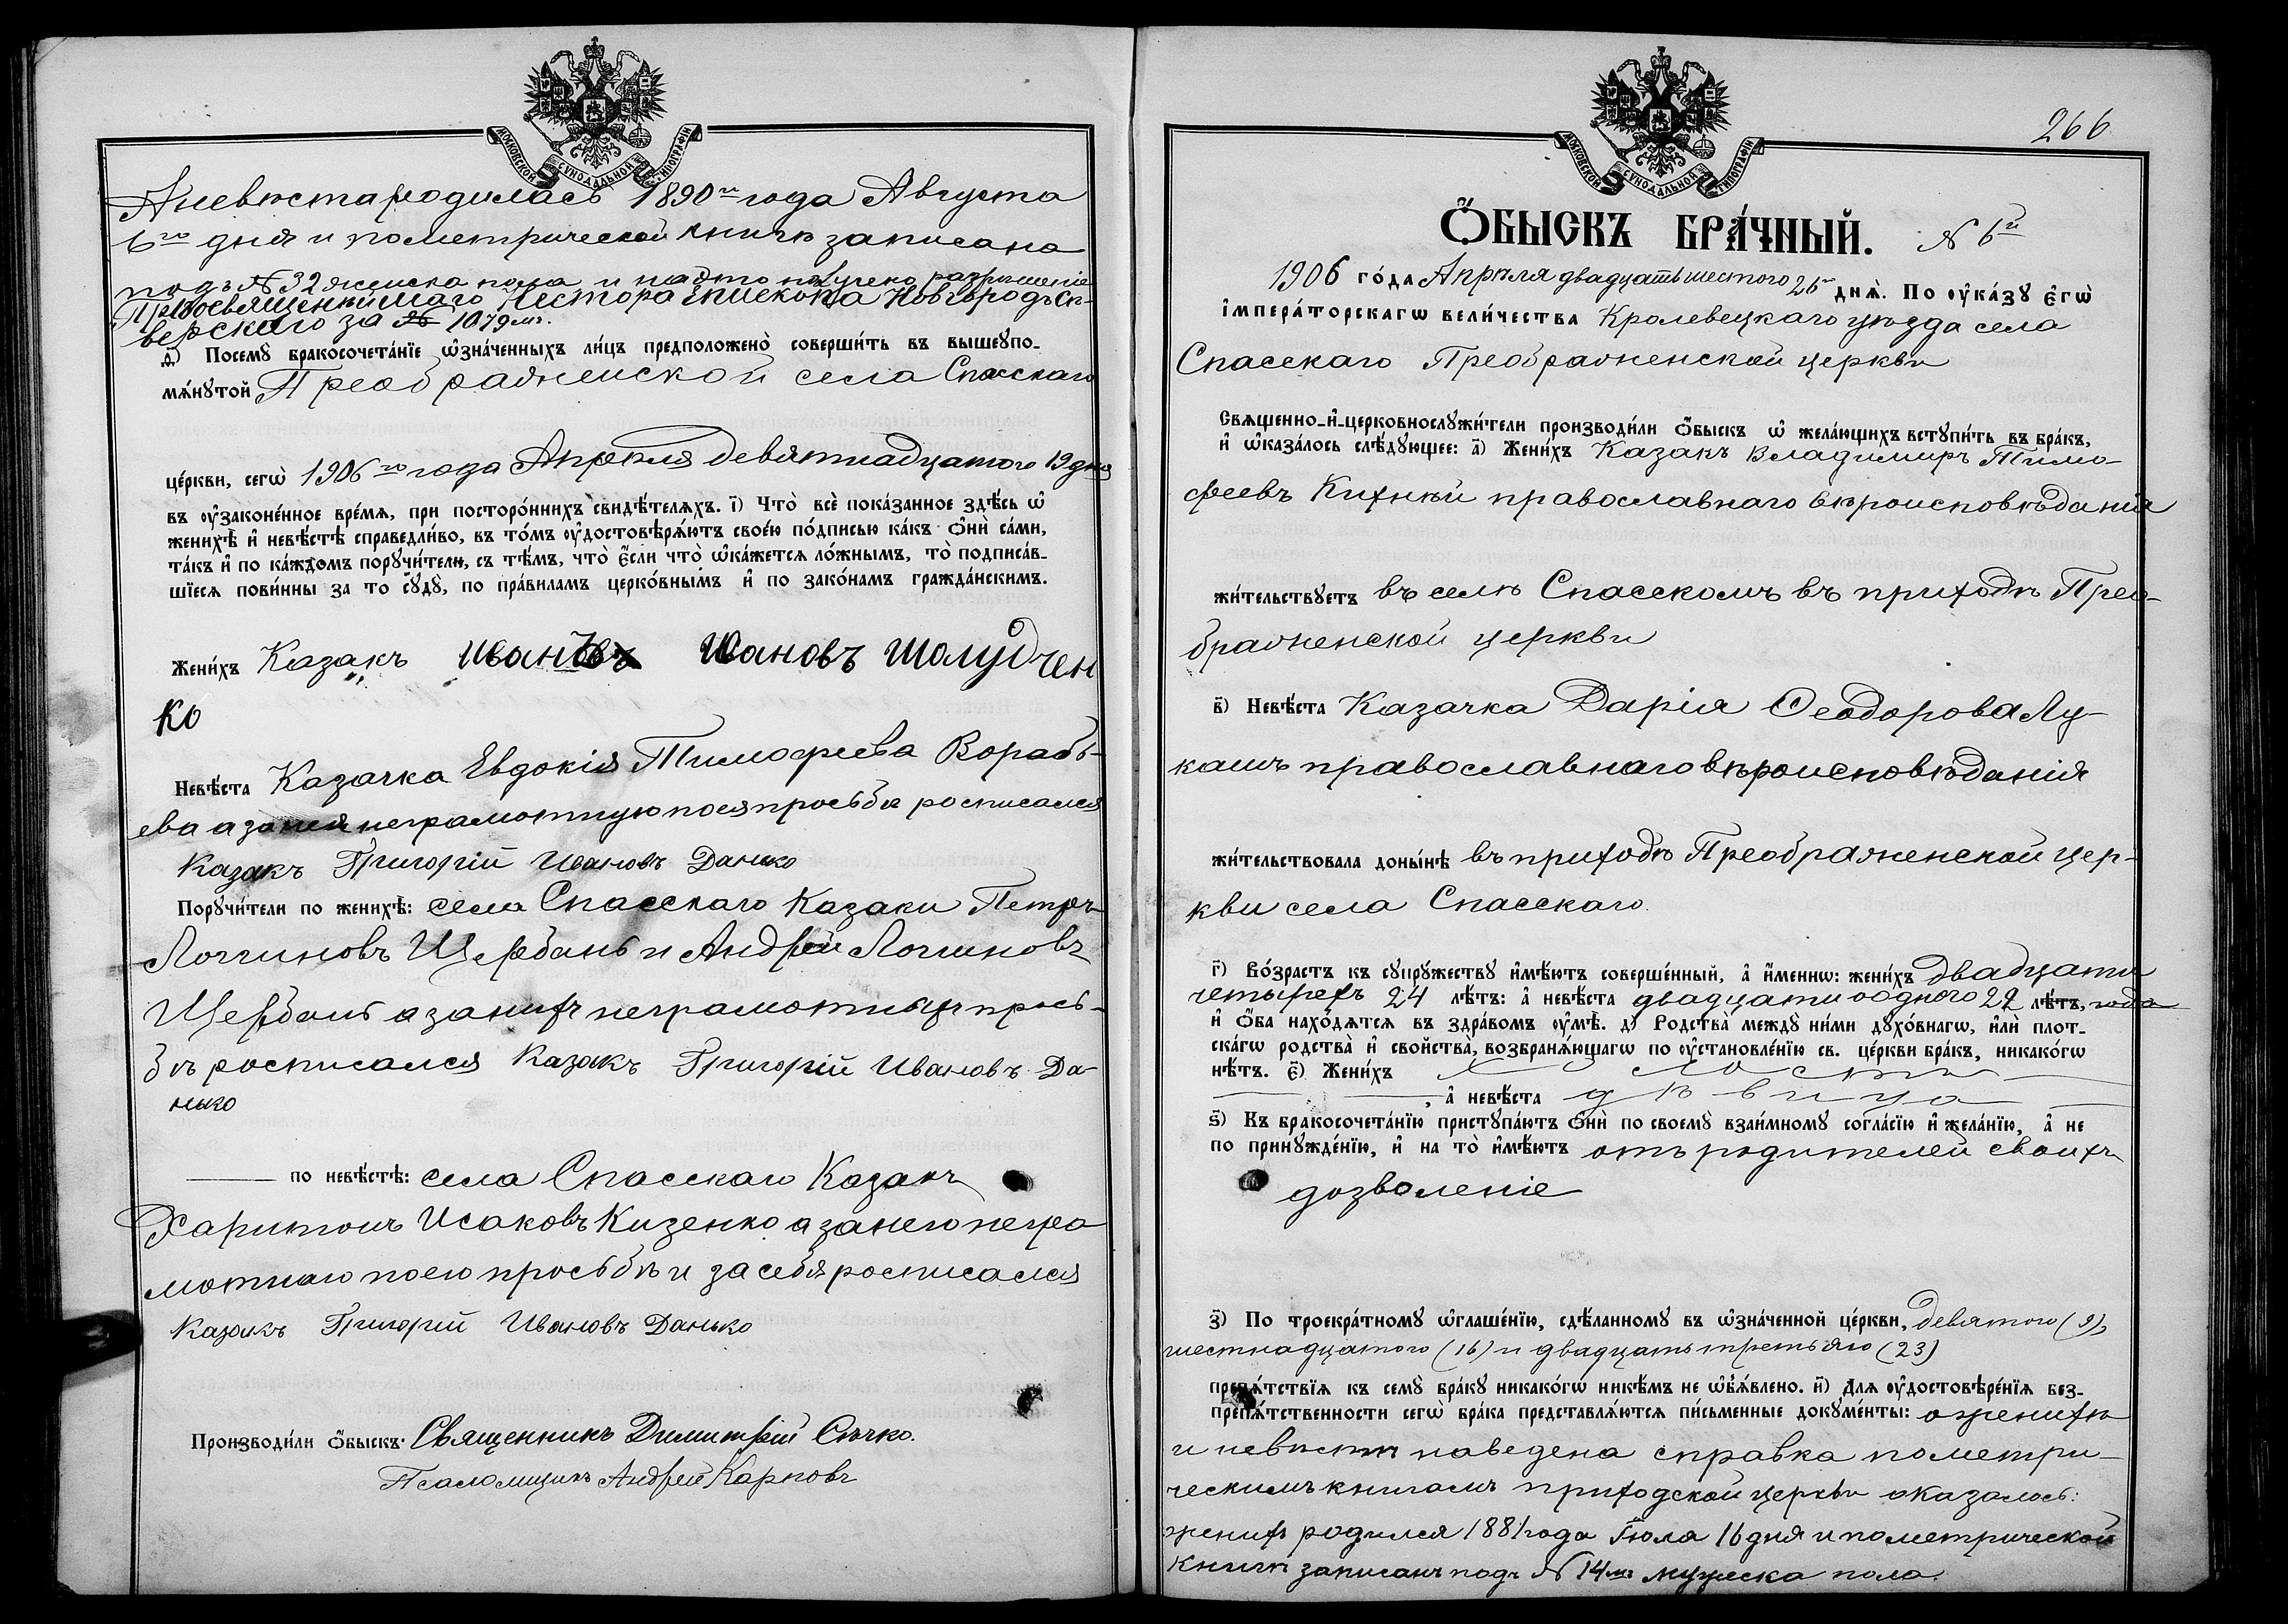 МОСКОВСКОЙ СѴНОДАЛЬНОЙ ТИПОГРАФІИ
А невѣста родилась 1890го года Августа
6го дня и по метрической книгѣ записана
подъ № 32 женска пола и на это получено разрѣшеніе
Преосвященнѣйшаго Нестора Епископа Новгородъ Сѣ-
верскаго за № 1079мъ.
ѳ҃) Посемꙋ̀ бракосочета́нїе ѡ҆зна́ченныхъ ли́цъ предположено̀ соверши́ть въ вышеꙋпо-
мѧ́нꙋтой Преображенской села Спасскаго
це́ркви, сегѡ̀ 1906го года Апрѣля девятнадцатого 19 дня
въ ᲂу҆законе́нное вре́мѧ, при посторо́ннихъ свидѣ́телѧхъ. і҃) Что̀ всѐ пока́занное здѣ́сь ѡ҆
женихѣ̀ и҆ невѣ́стѣ справедли́во, въ то́мъ ᲂу҆достовѣрѧ́ютъ свое́ю по́дписью ка́къ ѻ҆нѝ са́ми,
та́къ и҆ по ка́ждомъ порꙋчи́тели, съ тѣ́мъ, что̀ є҆́сли что̀ ѡ҆ка́жетсѧ ло́жнымъ, то̀ подписа́в-
шїесѧ пови́нны за то сꙋдꙋ̀, по пра́виламъ церко́внымъ и҆ по зако́намъ гражда́нскимъ.
Жени́хъ Казакъ Иванъ Ивановъ Шолудчен
ко
Невѣ́ста Казачка Евдокія Тимофеева Воробь-
ева а за нея неграмотную по ея просьбѣ росписался
Казакъ Григорій Ивановъ Данько
Порꙋчи́тели по женихѣ̀: села Спасскаго Казаки Петръ
Логгиновъ Щербань и Андрей Логиновъ
Щербань а за нихъ неграмотныхъ прось-
бѣ росписался Казакъ Григорій Ивановъ Да-
нько
по невѣ́стѣ: села Спасскаго Казакъ
Харитонъ Исаковъ Кизенко а за него негра
мотнаго по его просьбѣ и за себя росписался
Казакъ Григорій Ивановъ Данько
Производи́ли ѻ҆́быскъ: Священникъ Димитрій Сѣчко.
Псаломщикъ Андрей Карповъ
266
МОСКОВСКОЙ СѴНОДАЛЬНОЙ ТИПОГРАФІИ
Ѻ҆́БЫСКЪ БРА́ЧНЫЙ. № 6й
1906 го́да Апрѣля двадцать шестого 26го днѧ̀. По ᲂу҆ка́зꙋ є҆гѡ̀
і҆мпера́торскагѡ вели́чества Кролевецкаго уѣзда села
Спасскаго Преображенской церкви
Свѧщенно-и҆-церковнослꙋжи́тели производи́ли ѻ҆́быскъ ѡ҆ жела́ющихъ встꙋпи́ть въ бра́къ,
и҆ ѡ҆каза́лось слѣ́дꙋющее: а҃) Жени́хъ Казакъ Владимиръ Тимо-
феевъ Кихтѣй православнаго вѣроисповѣданія
жи́тельствꙋетъ въ селѣ Спасскомъ въ приходѣ Прео-
браженской церкви
в҃) Невѣ́ста Казачка Дарія Ѳеодорова Лу-
кашъ православнаго вѣроисповѣданія
жи́тельствовала доны́нѣ въ приходѣ Преображенской цер-
кви села Спасскаго.
г҃) Во́зрастъ къ сꙋпрꙋ́жествꙋ и҆мѣ́ютъ соверше́нный, а҆ и҆́меннѡ: жени́хъ двадцати
четырехъ 24 лѣ́тъ: а҆ невѣ́ста двадцати лѣ́тъ, года
и҆ ѻ҆́ба нахо́дѧтсѧ въ здра́вомъ ᲂу҆мѣ̀. д҃) Родства̀ междꙋ̀ ни́ми дꙋхо́внагѡ, и҆лѝ плот-
ска́гѡ родства̀ и҆ свойства̀, возбранѧ́ющагѡ по ᲂу҆становле́нїю св. це́ркви бра́къ, никако́гѡ
нѣ́тъ. є҃) Жени́хъ холостъ
, а҆ невѣ́ста дѣвица
ѕ҃) Къ бракосочета́нїю пристꙋпа́ютъ ѻ҆нѝ по своемꙋ̀ взаи́мномꙋ согла́сїю и҆ жела́нїю, а҆ не
по принꙋжде́нїю, и҆ на то̀ и҆мѣ́ютъ отъ родителей своихъ
дозволеніе
з҃) По троекра́тномꙋ ѡ҆глаше́нїю, сдѣ́ланномꙋ въ ѡ҆зна́ченной це́ркви, девятого (9),
шестнадцатого (16) и двадцать третьяго (23)
препѧ́тствїѧ къ семꙋ̀ бра́кꙋ никако́гѡ никѣ́мъ не ѡ҆б̾ѧ́влено. и҃) Для ᲂу҆достовѣре́нїѧ без-
препѧ́тственности сегѡ̀ бра́ка представлѧ́ютсѧ пи́сьменные докꙋме́нты: о женихѣ
и невѣстѣ наведена справка по метри-
ческимъ книгамъ приходской церкви оказалось:
женихъ родился 1881 года Іюла 16 дня и по метрической
книгѣ записанъ подъ № 14мъ мужеска пола.